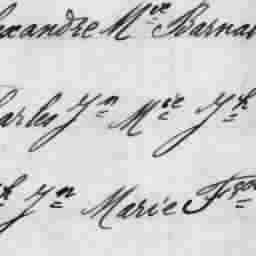 exandre Mie Barna
harles Jn Mie Jh
h Jn Marie Frço